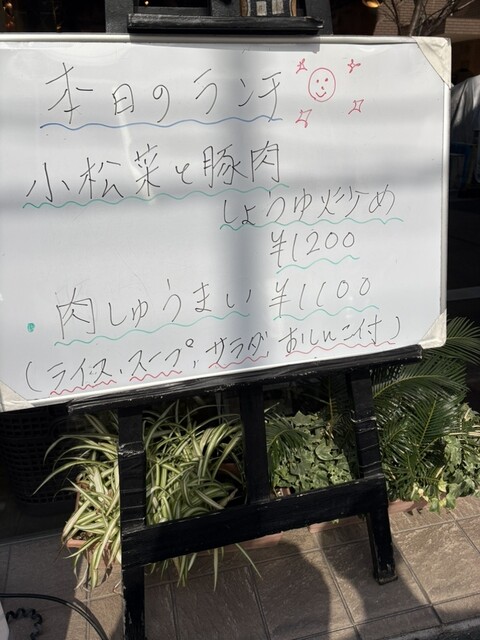 本日のランチ
小松菜と豚肉
しょうゆ炒め
¥1200
肉しゅうまい ¥1100
(ライス、スープ、サラダ、おしんこ付)